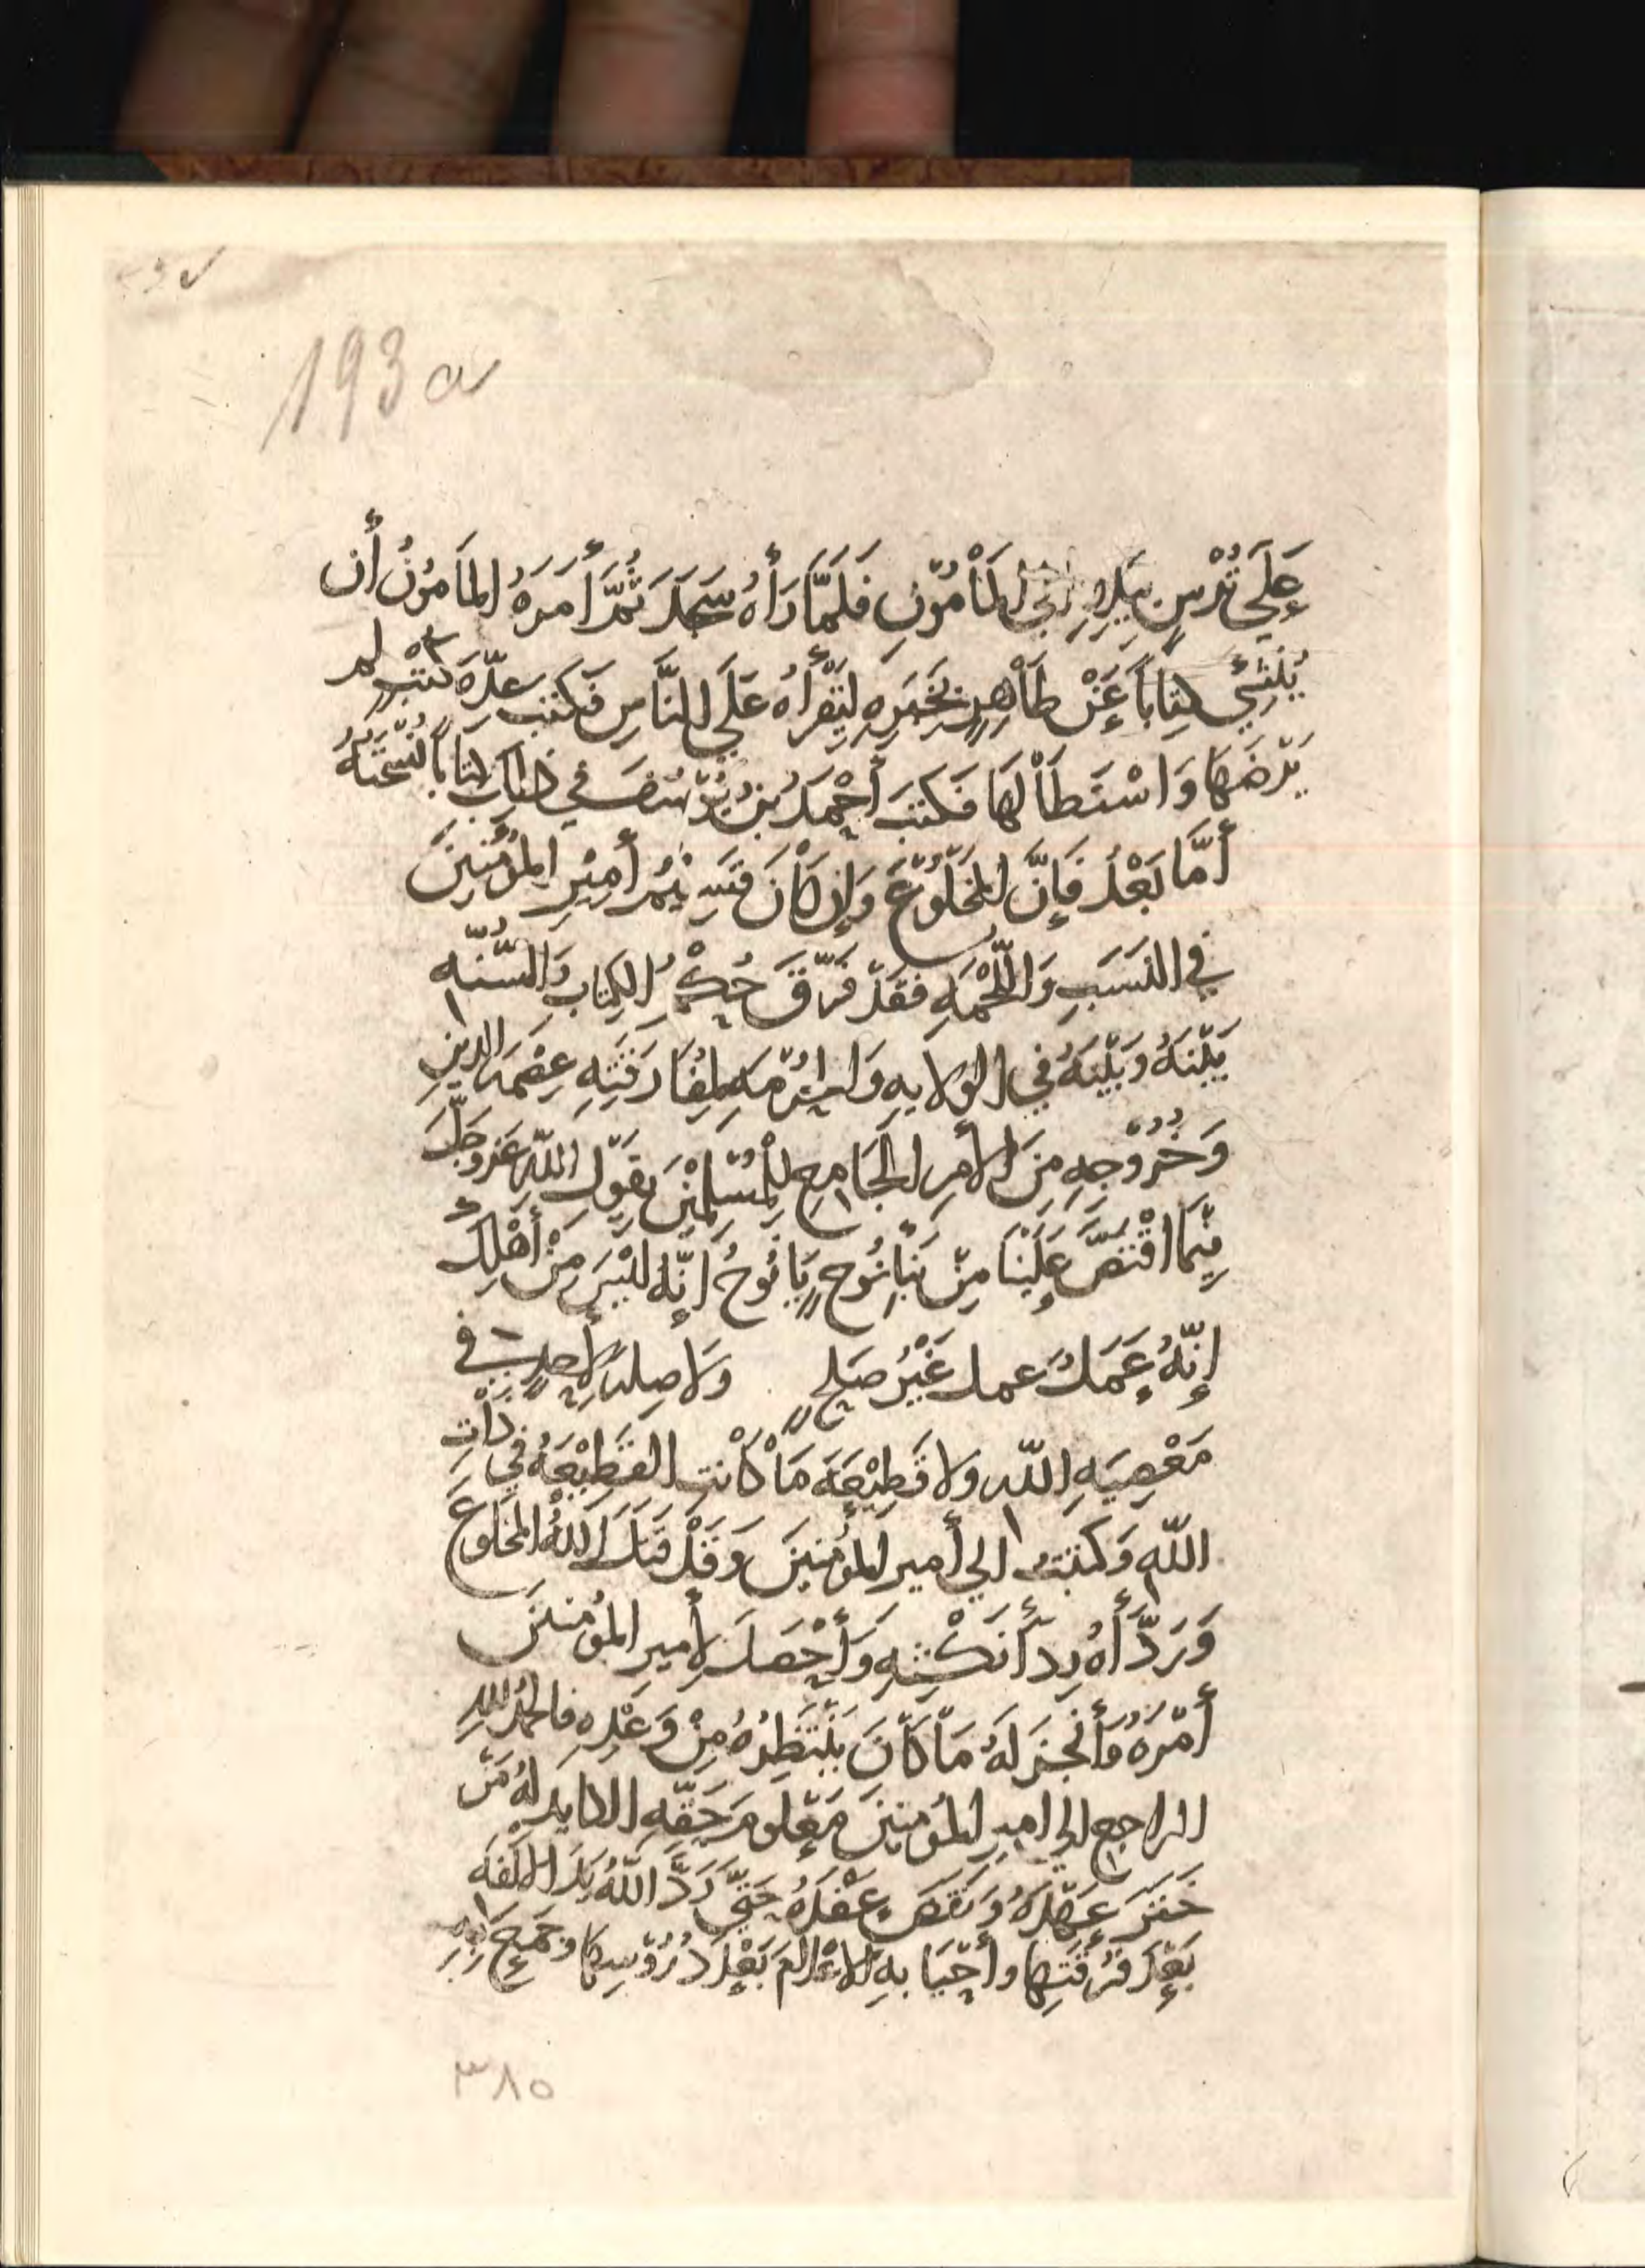 193a
عَلَي تُرْسٍ بَيدِهِ الي المَأْمُوْنِ فَلَمَّا رَأَاهُ سَجَدَ ثُمَّ أَمَرَهُ المَامُوْنُ أَن
يُنْشِيَ كِتِابَاً عَنْ طَاْهِرٍ بِخَبَرِهِ لِيَقْرَأَهُ عَلَي النَّاسِ فَكتبت عِدّة كُتُبٍ لم
يَرْضَهَا وَاسْتَطَاْلهَا فَكتَبَ أَحْمَدُ بنُ يُوسُفَ في ذلك كتاباً نُسْخَتهُ
أَمَّا بَعْدُ فَإِنَّ المَخْلُوْعَ وَإِن كَاْنَ قَسِيْمَ أَمِيْرِ المُؤْمِنِينَ
في النَسَبِ وَاللّحْمَهِ فَقَدْ فَرَّقَ حُكْمُ الكِتَابِ وَالسُّنّه
بَيْنَهُ وَبَيْنَهُ في الوَلايهِ وَالحُرْمَهِ لِمُفَارَقَتِهِ عِصْمَهَ الدِينِ
وَخُرُوْجِهِ مِنَ الأَمْرِ الجَامِعِ لِلْمُسْلِمِيْنَ يَقُوْلُ اللّه عَزَّوجَلَّ
فِيْمَا اقْتَصَّ عَلَيْنَا مِنْ نَبَأِ نُوحٍ يَا نُوحُ إِنّهُ لَيْسَ مِنْ أَهْلِكَ
إِنّهُ عَمَلٌ عمل غَيْرُ صَلِحٍ وَلَا صِلهَ لأَحدٍ في
مَعْصِيَهِ اللّه ولا قَطِيْعَهَ مَاْ كَاْنتِ القَطِيْعَهُ فيِ ذَاْتِ
اللّهِ وَكتَبْتُ الي أَمير المُؤمِنِيَنَ وَقَدْ قتَلَ اللّهُ المخَلوعَ
وَرَدَّأَهُ رِدَأَ نَكْثِهِ وَأَحْصَدَ لِأَميرِ المؤْمِنينَ
أَمْرَهُ وَأَنْجَز لَهُ مَاْ كَاْنَ يَنْتَظِرُهُ مِنْ وَعْدِهِ فالحَمْدُ للهِ
الراجع الي امير المُؤمنِينَ مَعْلومَ حَقّهِ الكايد لهُ مَنْ
خَتَرَ عَهْدَهُ وَنَقَضَ عَقْدَهُ حَتّي رَدَّ اللّهُ بِهَ الالفَه
بَعْدَ فُرْقَتِها وأَحْيَا بهِ الاعْلامَ بَعْدَ دُرُوْسِهَا وجَمَع بِهِ
٣٨٥